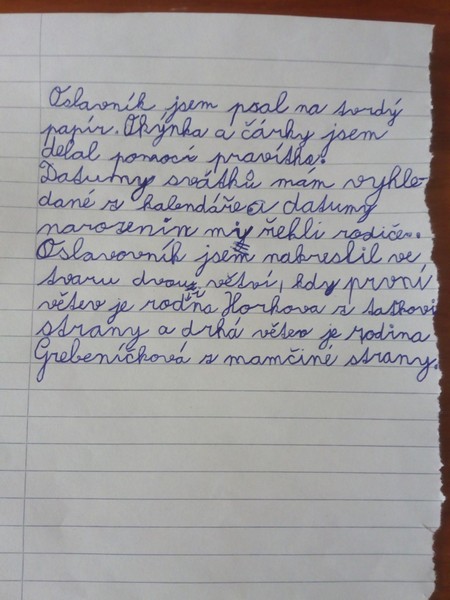 Oslavník jsem psal na tvrdý
papír. Okýnka a čárky jsem
dělal pomocí pravítka.
Datumy svátků mám vyhle
dané z kalendáře a datumy
narozenin my řekli rodiče.
Oslavovník jsem nakreslil ve
tvaru dvou větví, kdy první
větev je rodina Horkova z taťkovi
strany a drhá větev je rodina
Grebeníčková z mamčiné strany.